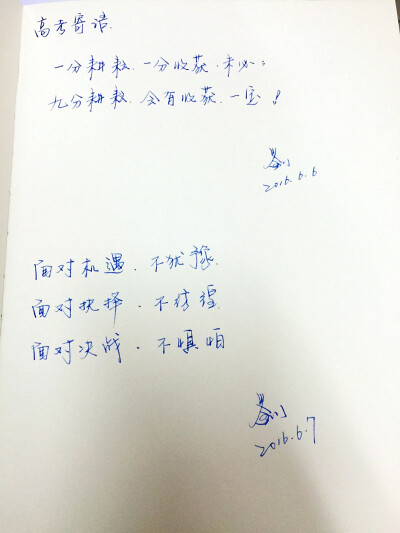 高考寄语
一分耕耘.一分收获.未必;
九分耕耘.会有收获.一定!
2016.6.6
面对机遇.不犹豫.
面对抉择.不彷徨
面对决战.不惧怕
2016.6.7